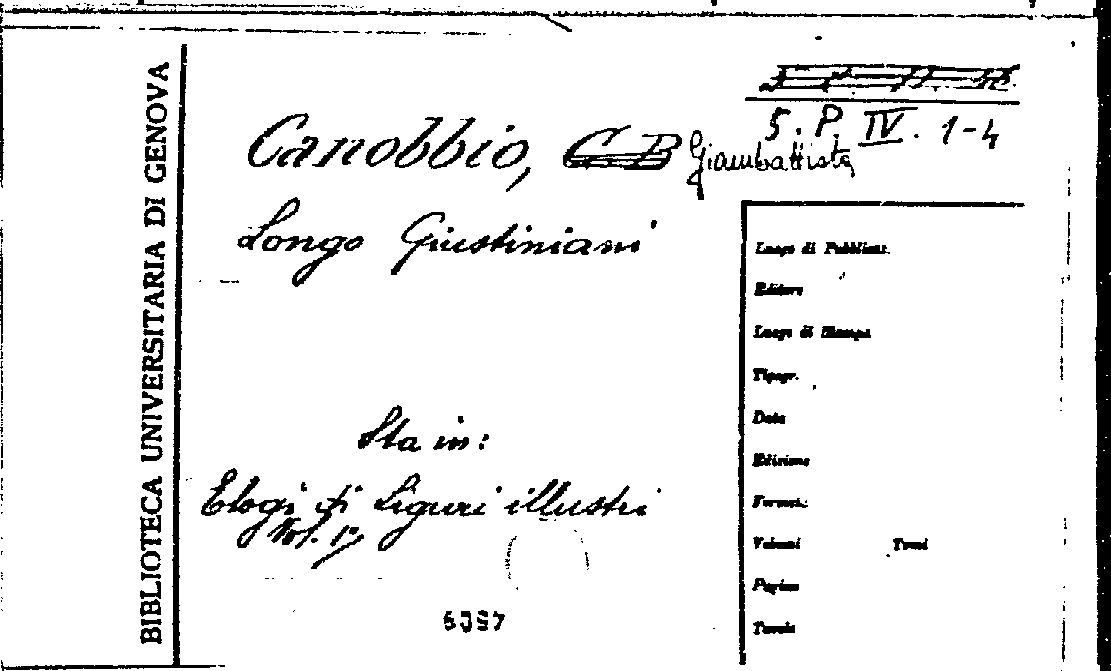 BIBLIOTECA UNIVERSITARIA DI GENOVA
5. P. IV. 1-4
Canobbio, C B Giambattista
Longo Giustiniani
Sta in:
Elogi di Liguri illustri
Vol. 1º
Luogo di Pubblicaz.
Editore
Luogo di Stampa
Tipogr.
Data
Edizione
Formato
Volumi Tomi
Pagine
Tavole